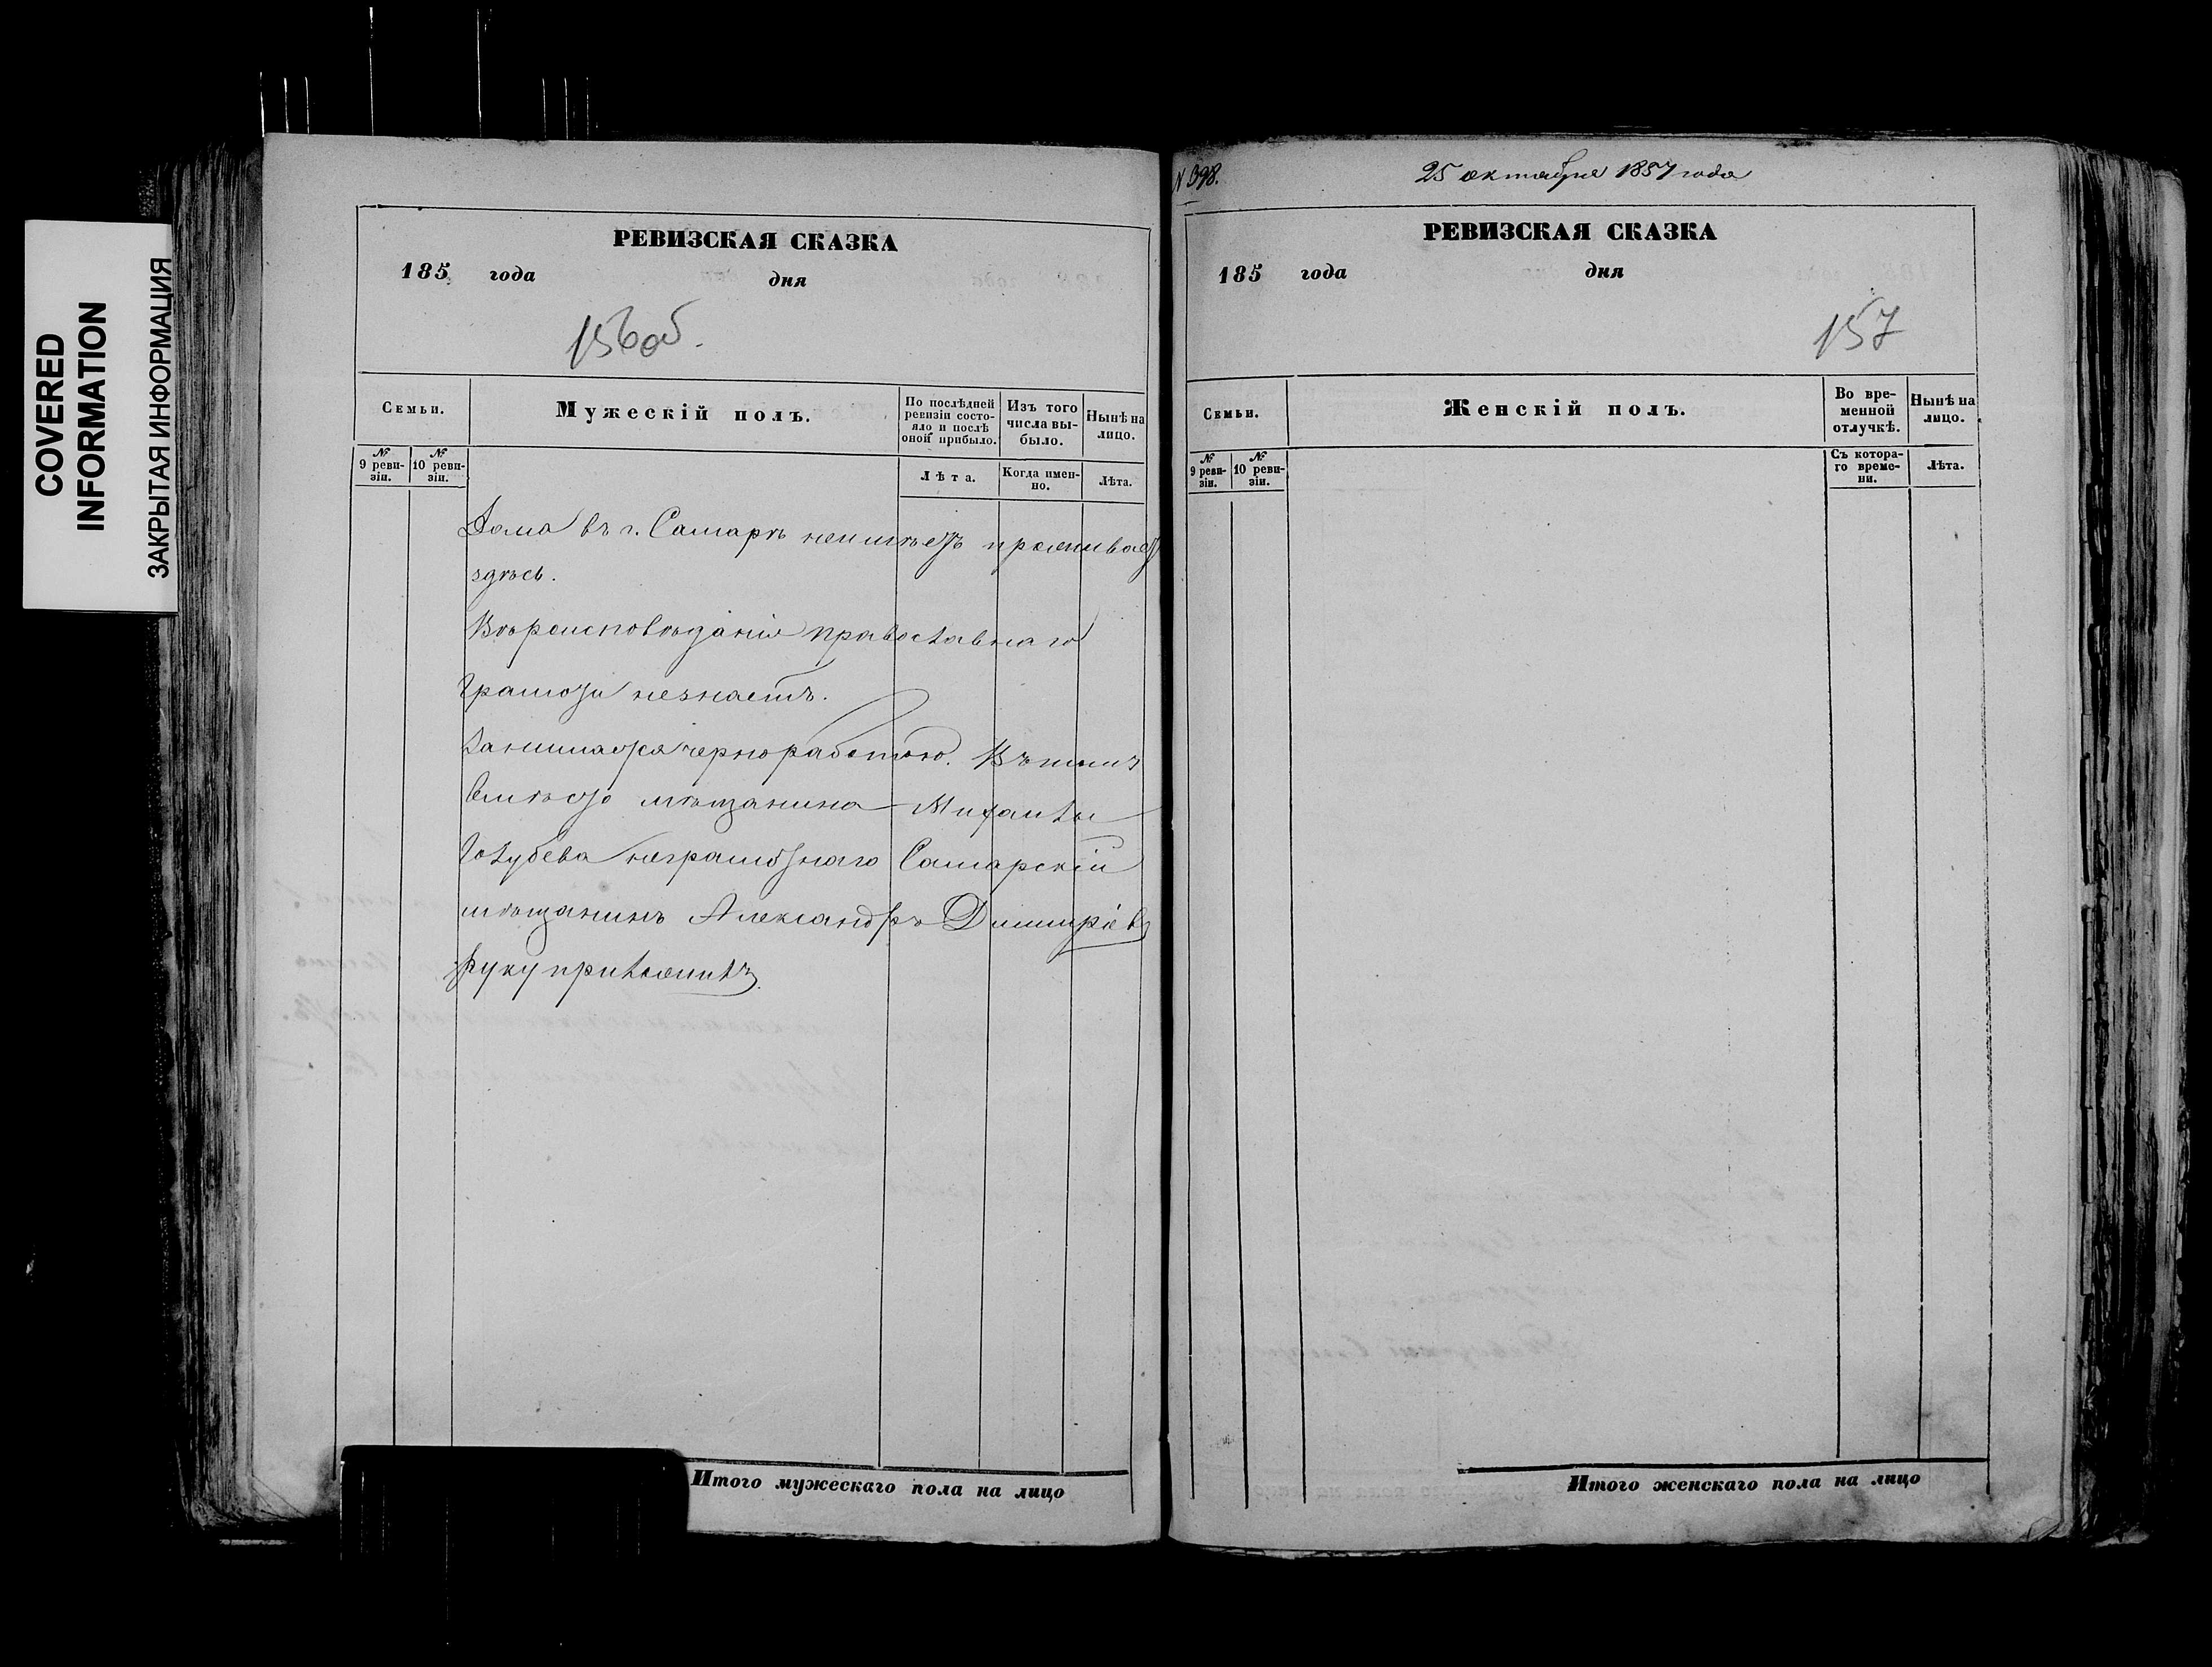 COVERED
INFORMATION
ЗАКРЫТАЯ ИНФОРМАЦИЯ
РЕВИЗСКАЯ СКАЗКА
185 года дня
156об.
Семьи.
Мужескій полъ.
По послѣдней ревизіи состояло и послѣ оной прибыло.
Изъ того числа выбыло.
Нынѣ на лицо.
№ 9 ревизіи.
№ 10 ревизіи.
Лѣта.
Когда именно.
Лѣта.
Дома въ г. Самарѣ неимѣетъ проживает
здѣсь.
Вѣроисповѣданія православнаго
Грамоты незнаетъ.
Занимается черноработою. Къ
вмѣсто мѣщанина
Голубева неграмотнаго Самарскій
мѣщанинъ Александръ Димитріев
руку приложилъ.
Итого мужескаго пола на лицо
N 398.
25 октября 1857 года
РЕВИЗСКАЯ СКАЗКА
185 года дня
157
Семьи.
Женскій полъ.
Во временной отлучкѣ.
Нынѣ на лицо.
№ 9 ревизіи.
№ 10 ревизіи.
Съ котораго времени.
Лѣта.
Итого женскаго пола на лицо